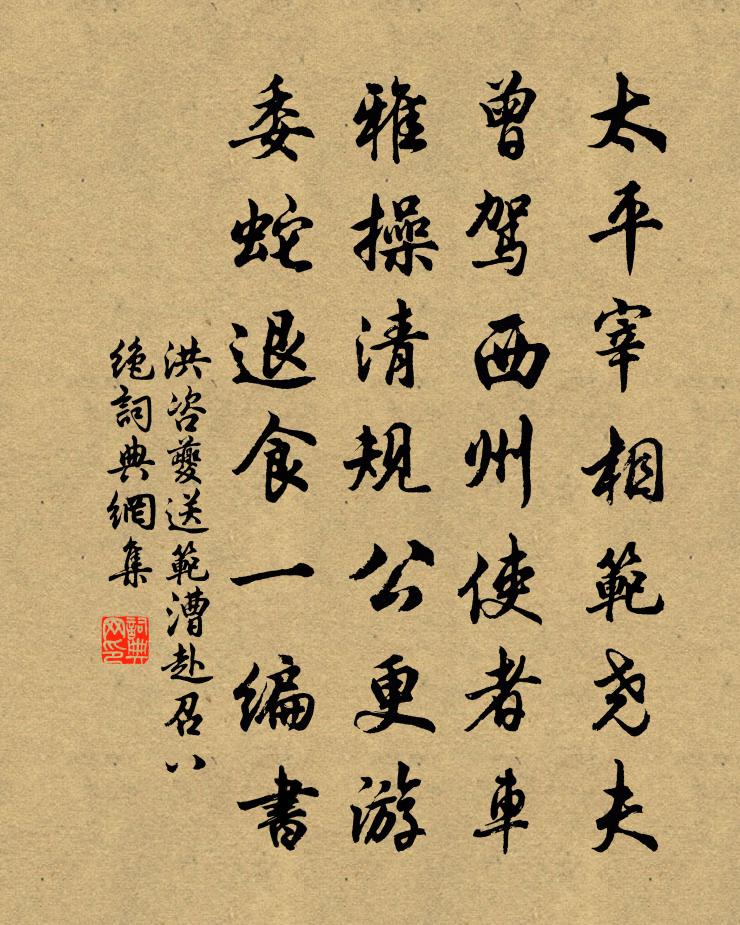 太平宰相範尧夫
曾駕西州使者車
雅操清規公更游
委蛇退食一编書
洪咨夔送範漕赴召八
絶詞典網集
詞典
网印